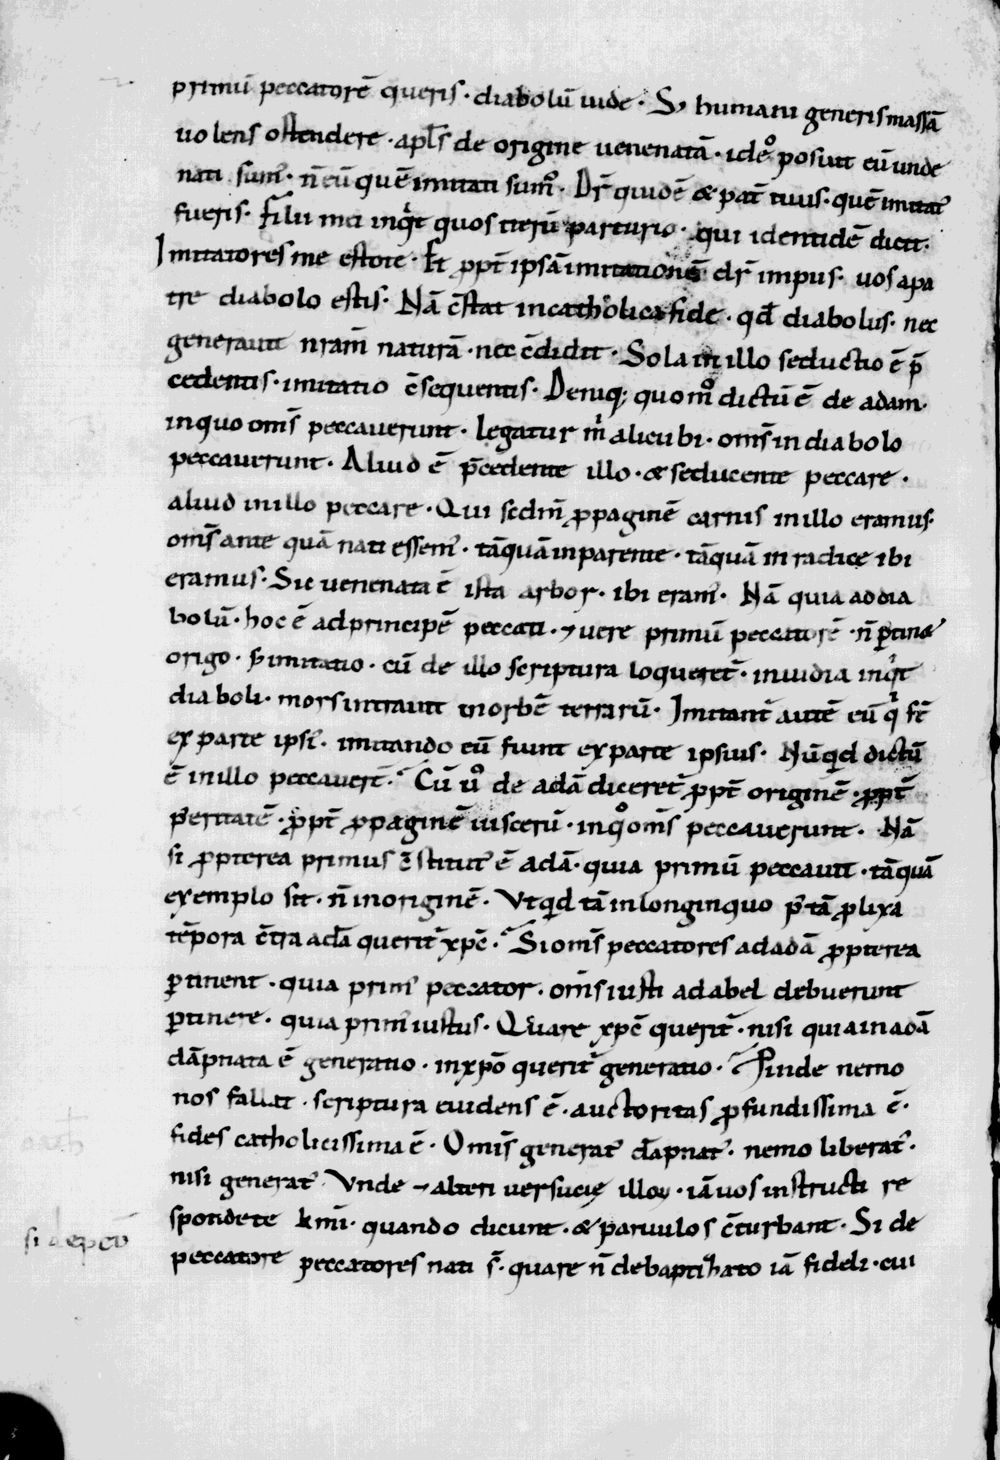 primū peccatorē queris · diabolū uide · S; humani generis massā
uolens ostendere · apl̄s de origine uenenatā · ideo posuit eū unde
nati sum᷒ · n̄ eū quē imitati sum᷒ · Dr̄ quidē & pat̄ tuus · quē imitat᷒
fueris · Filii mei inqͥt quos iterū parturio · qui identidē dicit ·
Imitatores mei estote · Et ꝓpt̄ ipsā imitationē dr̄ impiis · uos a pa
tre diabolo estis · Nā c̄stat in catholica fide · qđ diabolus · nec
generauit nr̄am naturā · nec c̄didit · Sola in illo seductio ē p̄
cedentis · imitatio c̄sequentis · Deniq; quomᵒ dictū ē de adam ·
in quo om̄s peccauerunt · legatur mͥ alicubi · om̄s in diabolo
peccauerunt · Aliud ē p̄cedente illo · & seducente peccare ·
aliud in illo peccare · Qui scdm̄ ꝓpaginē carnis in illo eramus ·
om̄s ante quā nati essem᷒ · tāquā in parente · tāquā in radice ibi
eramus · Sic uenenata ē ista arbor · ibi eram᷒ · Nā quia ad dia
bolū · hoc ē ad principē peccati · ⁊ uere primū peccatorē · n̄ ꝑtinet
origo · s; imitatio · cū de illo scriptura loqueret᷒ · inuidia inqͥt
diaboli · mors intrauit in orbē terrarū · Imitant᷒ autē eū qͥ st̄
ex parte ipsi᷒ · imitando eū fiunt ex parte ipsius · Nūqͥd dictū
ē in illo peccauert̄ · Cū uᵒ de adā diceret᷒ ꝓpt̄ originē · ꝓpt̄
posteritatē · ꝓpt̄ ꝓpaginē uiscerū · in qͦ om̄s peccauerunt · Nā
si ꝓpterea primus c̄stitut᷒ ē adā · quia primū peccauit · tāquā
exemplo sit · n̄ in originē · Vtqͥd tā in longinquo p᷒ tā ꝓlixa
tēpora c̄tra adā querit᷒ xp̄c · Si om̄s peccatores ad adā ꝓpterea
ꝑtinent · quia prim᷒ peccator · om̄s iusti ad abel debuerunt
ꝑtinere · quia prim᷒ iustus · Quare xp̄c querit᷒ · nisi quia in adā
dāpnata ē generatio · in xp̄o querit᷒ generatio · Proinde nemo
nos fallat · scriptura euidens ē · auctoritas ꝓfundissima ē ·
fides catholicissima ē · Omīs generat᷒ dāpnat᷒ · nemo liberat᷒ ·
nisi generat᷒ Vnde ⁊ alteri uersucię illoꝝ · iā uos instructi re
spondete kmī · quando dicunt · & paruulos c̄turbant · Si de
peccatore peccatores nati s̄ · quare n̄ de baptizato iā fideli · cui